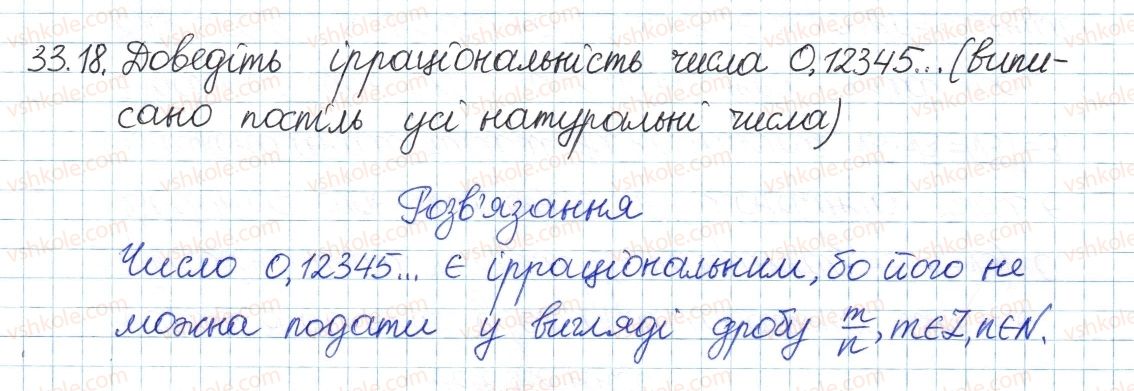 33.18. Доведіть ірраціональність числа 0,12345...(випи-
сано постіль усі натуральні числа)
Розв'язання
Число 0,12345... є ірраціональним, бо його не
можна подати у вигляді дробу m/n, m∈Z, n∈N.